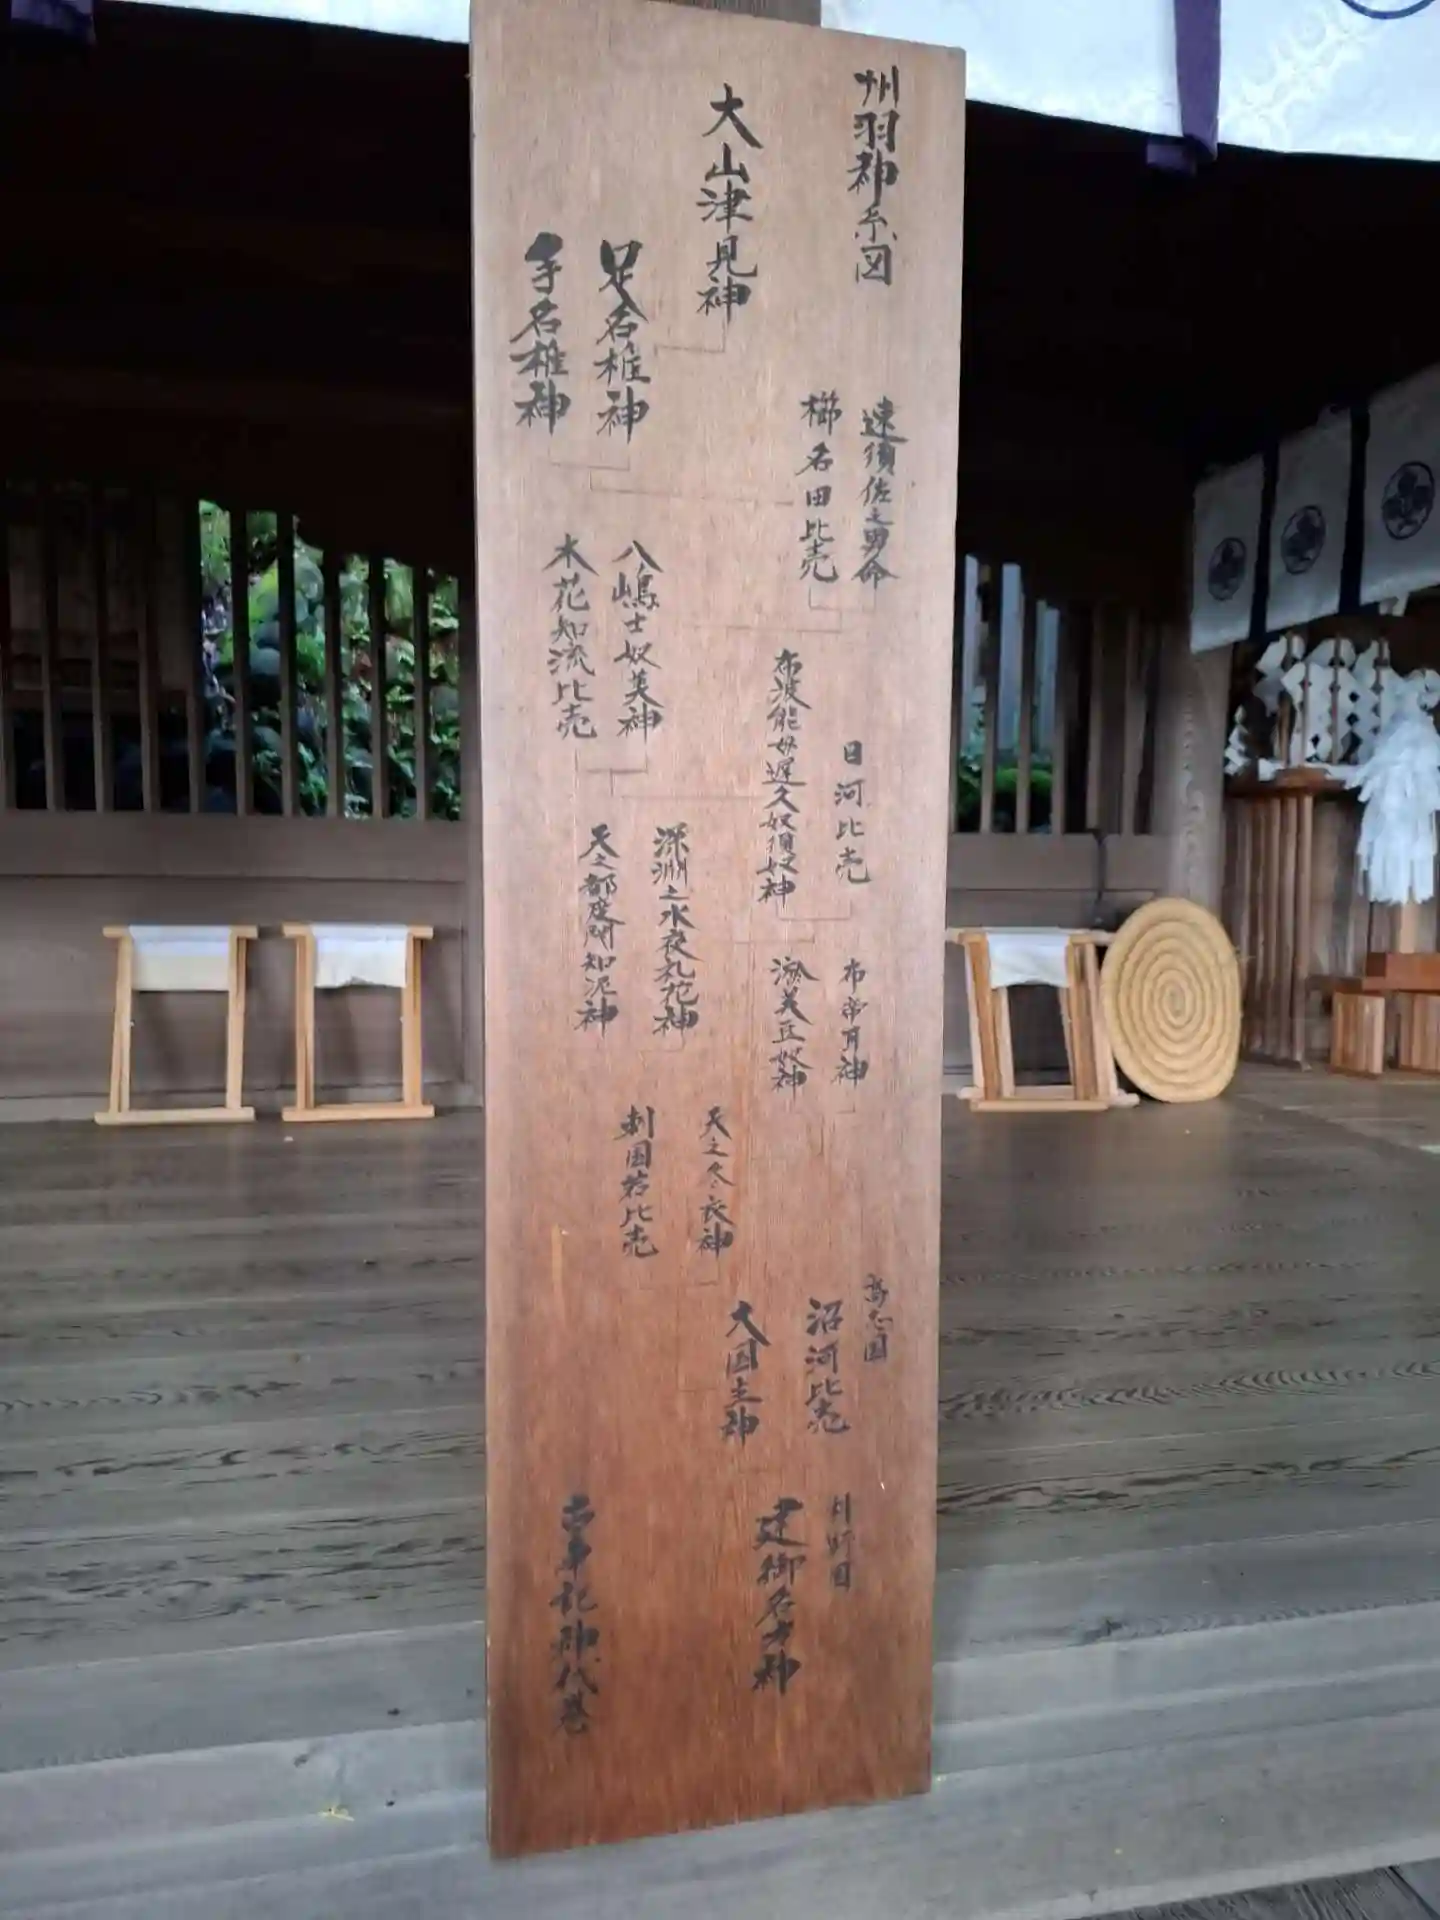 州羽神系図
大山津見神
足名椎神
手名椎神
速須佐之男命
櫛名田比売
八嶋士奴美神
木花知流比売
日河比売
布波能母遅久奴須奴神
深淵之水夜礼花神
天之都度閇知泥神
布帝耳神
淤美豆奴神
天之冬衣神
刺国若比売
高志国
沼河比売
大国主神
科野国
建御名方神
古事記神代巻